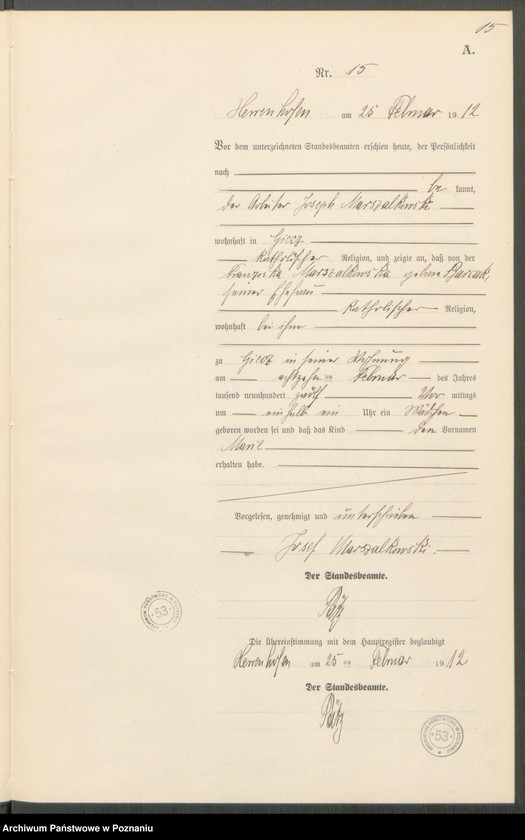 15
A.
Nr. 15
Herrenhofen am 25 Februar 1912
Vor dem unterzeichneten Standesbeamten erschien heute, der Persönlichkeit
nach
be kannt,
der Arbeiter Joseph Marszalkowski
wohnhaft in Giecz
katholischer Religion, und zeigte an, daß von der
Franziska Marszalkowska geborne Barczak,
seiner Ehefrau
katholischer Religion,
wohnhaft bei ihm
zu Giecz in seiner Wohnung
am achtzehn ten Februar des Jahres
tausend neunhundert zwölf Vor mittags
um einhalb ein Uhr ein Mädchen
geboren worden sei und daß das Kind den Vornamen
erhalten habe.
Vorgelesen, genehmigt und unterschrieben
Josef Marszalkowski.
Der Standesbeamte.
Die Übereinstimmung mit dem Hauptregister beglaubigt
Herrenhofen am 25 ten Februar 1912
Der Standesbeamte.
53
53
Archiwum Państwowe w Poznaniu